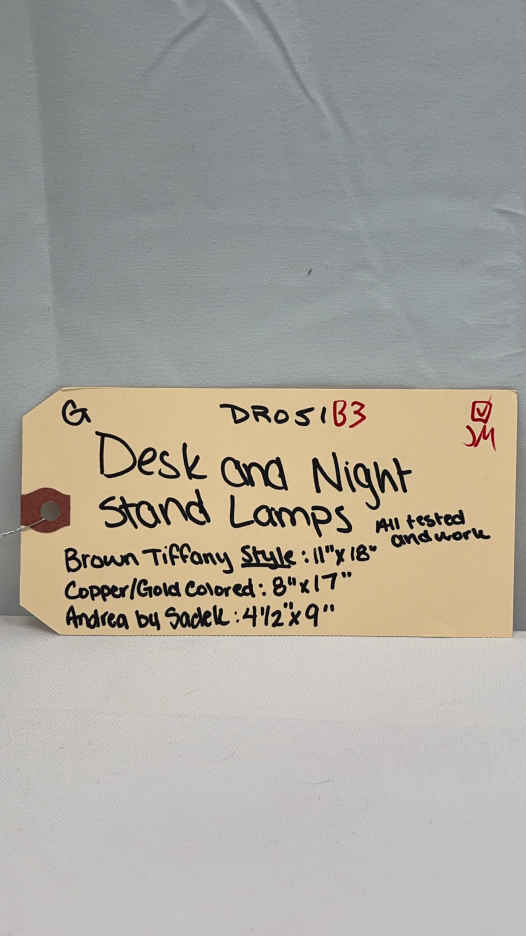 G DR051B3
JM
Desk and Night
Stand Lamps
All tested
and work
Brown Tiffany Style: 11"x18"
Copper/Gold Colored: 8"x17"
Andrea by Sadek: 4 1/2"x9"